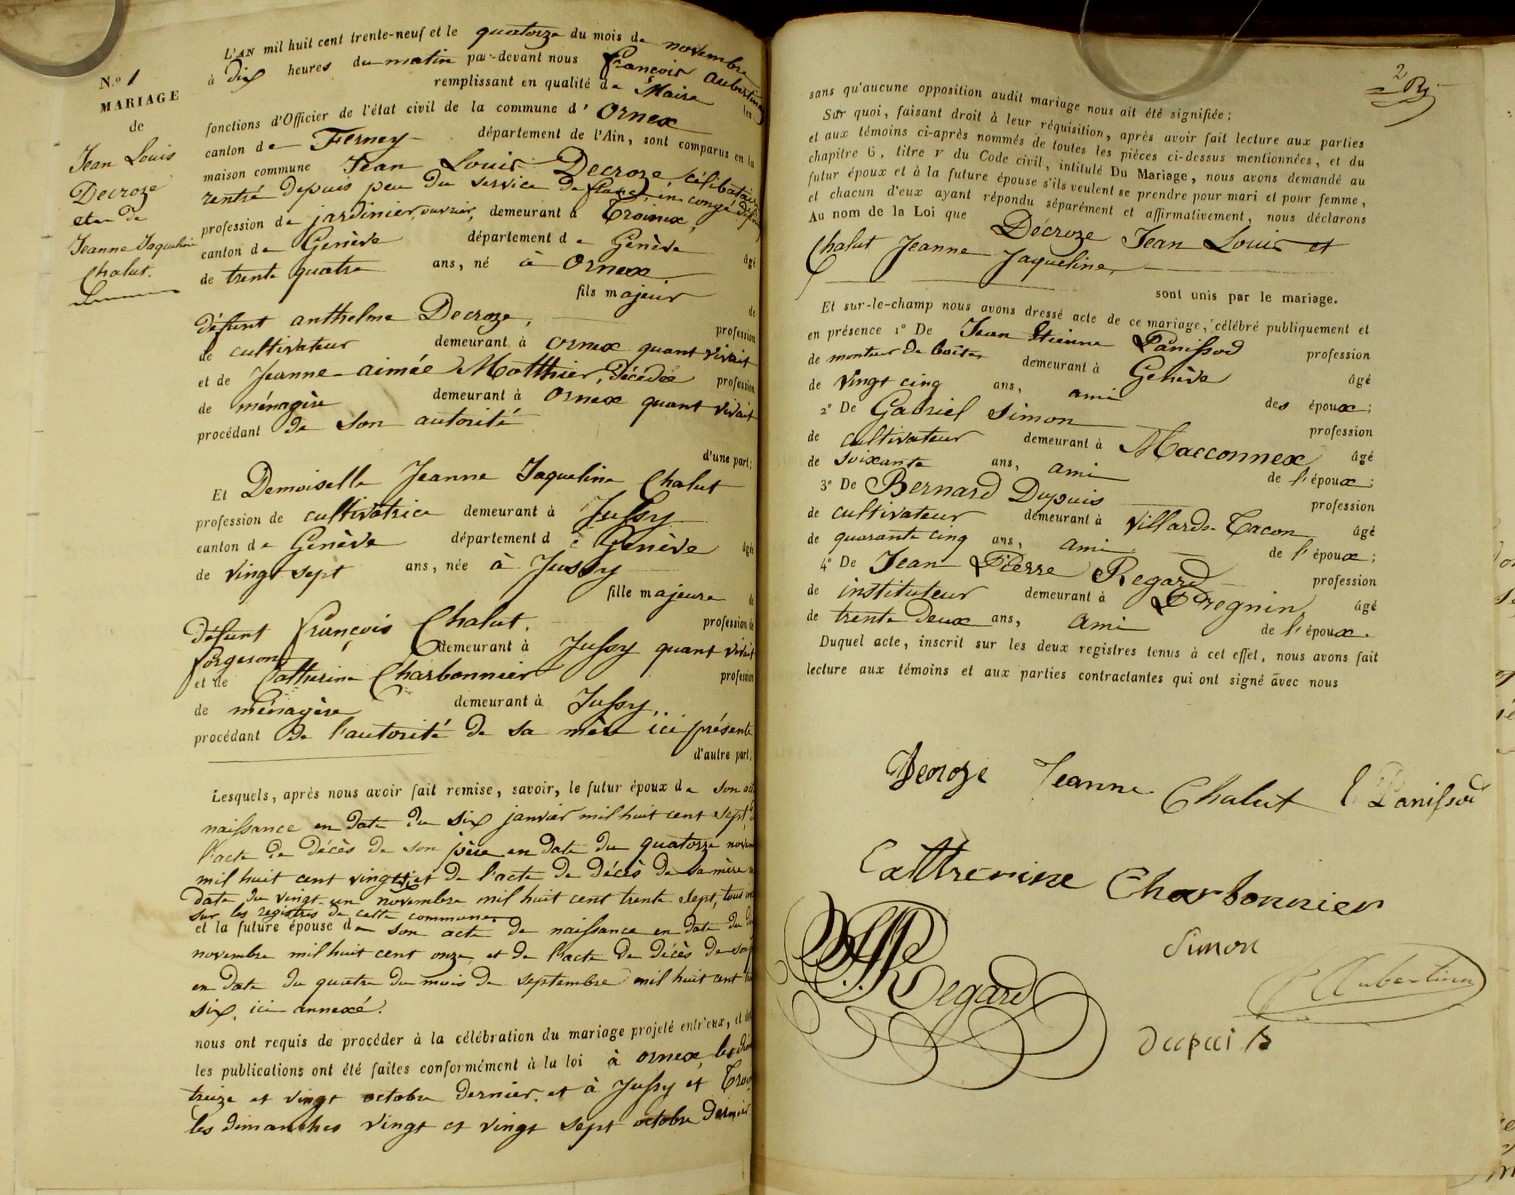 N.o 1
MARIAGE
de
Jean Louis
Decroze
et de
Jeanne Jaqueline
Chalut.
L'AN mil huit cent trente-neuf et le quatorze du mois de novembre
à dix heures du matin par-devant nous françois aubertin
remplissant en qualité de Maire les
fonctions d'Officier de l'état civil de la commune d'Ornex
canton de Ferney département de l'Ain, sont comparus en la
maison commune Jean Louis Decroze célibataire
rentré depuis peu du service de france, en congé
profession de jardinier, ouvrier, demeurant à Troinex,
canton de Genève département de Genève âgé
de trente quatre ans, né à Ornex
fils majeur de
défunt anthelme Decroze, profession
de cultivateur demeurant à Ornex quant vivait
et de Jeanne-aimée Matthier, décédée profession
de ménagère demeurant à Ornex quant vivait
procédant de son autorité
d'une part;
Et Demoiselle Jeanne Jaqueline Chalut
profession de cultivatrice demeurant à Jussy
canton de Genève département de Genève âgée
de vingt sept ans, née à Jussy
fille majeure de
défunt françois Chalut. profession de
forgeron demeurant à Jussy quant vivait
et de Catherine Charbonnier profession
de ménagère demeurant à Jussy,
procédant de l'autorité de sa mère ici présente
d'autre part,
Lesquels, après nous avoir fait remise, savoir, le futur époux de son
naissance en date du six janvier mil huit cent sept,
l'acte de décès de son père en date du quatorze
mil huit cent vingt et de l'acte de décès de sa mère
date du vingt-un novembre mil huit cent trente sept, tous
sur les registres de cette commune
et la future épouse de son acte de naissance en date du
novembre mil huit cent onze, et de l'acte de décès de son
en date du quatre du mois de septembre mil huit cent
six, ici annexé.
nous ont requis de procéder à la célébration du mariage projeté entr'eux, et
les publications ont été faites conformément à la loi à ornex, les
treize et vingt octobre dernier. et à Jussy et
les dimanches vingt et vingt sept octobre dernier
2
sans qu'aucune opposition audit mariage nous ait été signifiée;
Sur quoi, faisant droit à leur réquisition, après avoir fait lecture aux parties
et aux témoins ci-après nommés de toutes les pièces ci-dessus mentionnées, et du
chapitre 6, titre V du Code civil, intitulé Du Mariage, nous avons demandé au
futur époux et à la future épouse s'ils veulent se prendre pour mari et pour femme,
et chacun d'eux ayant répondu séparément et affirmativement, nous déclarons
Au nom de la Loi que Decroze Jean Louis et
Chalut Jeanne Jaqueline,
sont unis par le mariage.
Et sur-le-champ nous avons dressé acte de ce mariage, célébré publiquement et
en présence 1° De Jean Etienne Panissod profession
de monteur de boites demeurant à Genève âgé
de vingt cinq ans, ami des époux;
2° De Gabriel Simon profession
de cultivateur demeurant à Macconnex âgé
de soixante ans, ami de l'époux;
3° De Bernard Dupuis profession
de cultivateur demeurant à Villards-Tacon âgé
de quarante cinq ans, ami de l'époux;
4° De Jean Pierre Regard profession
de instituteur demeurant à Pregnin, âgé
de trente deux ans, ami de l'époux.
Duquel acte, inscrit sur les deux registres tenus à cet effet, nous avons fait
lecture aux témoins et aux parties contractantes qui ont signé avec nous
Decroze Jeanne Chalut Panissod
Cattrerine Charbonnier
Simon
Regard
Aubertin
Dupuis